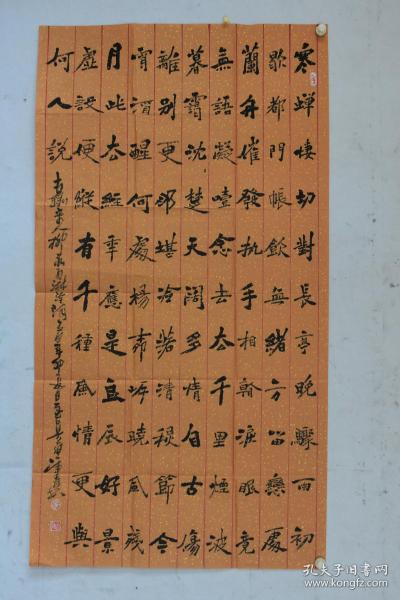 寒蟬悽切對長亭晚驟雨初
歇都門帳飲無緒方留戀處
蘭舟催發執手相看淚眼竟
無語凝噎念去去千里煙波
暮靄沈楚天闊多情自古傷
離別更那堪冷落清秋節今
宵酒醒何處楊柳岸曉風殘
月此去經年應是良辰好景
虛設便縱有千種風情更與
何人說
孔夫子旧书网
www.kongfz.com